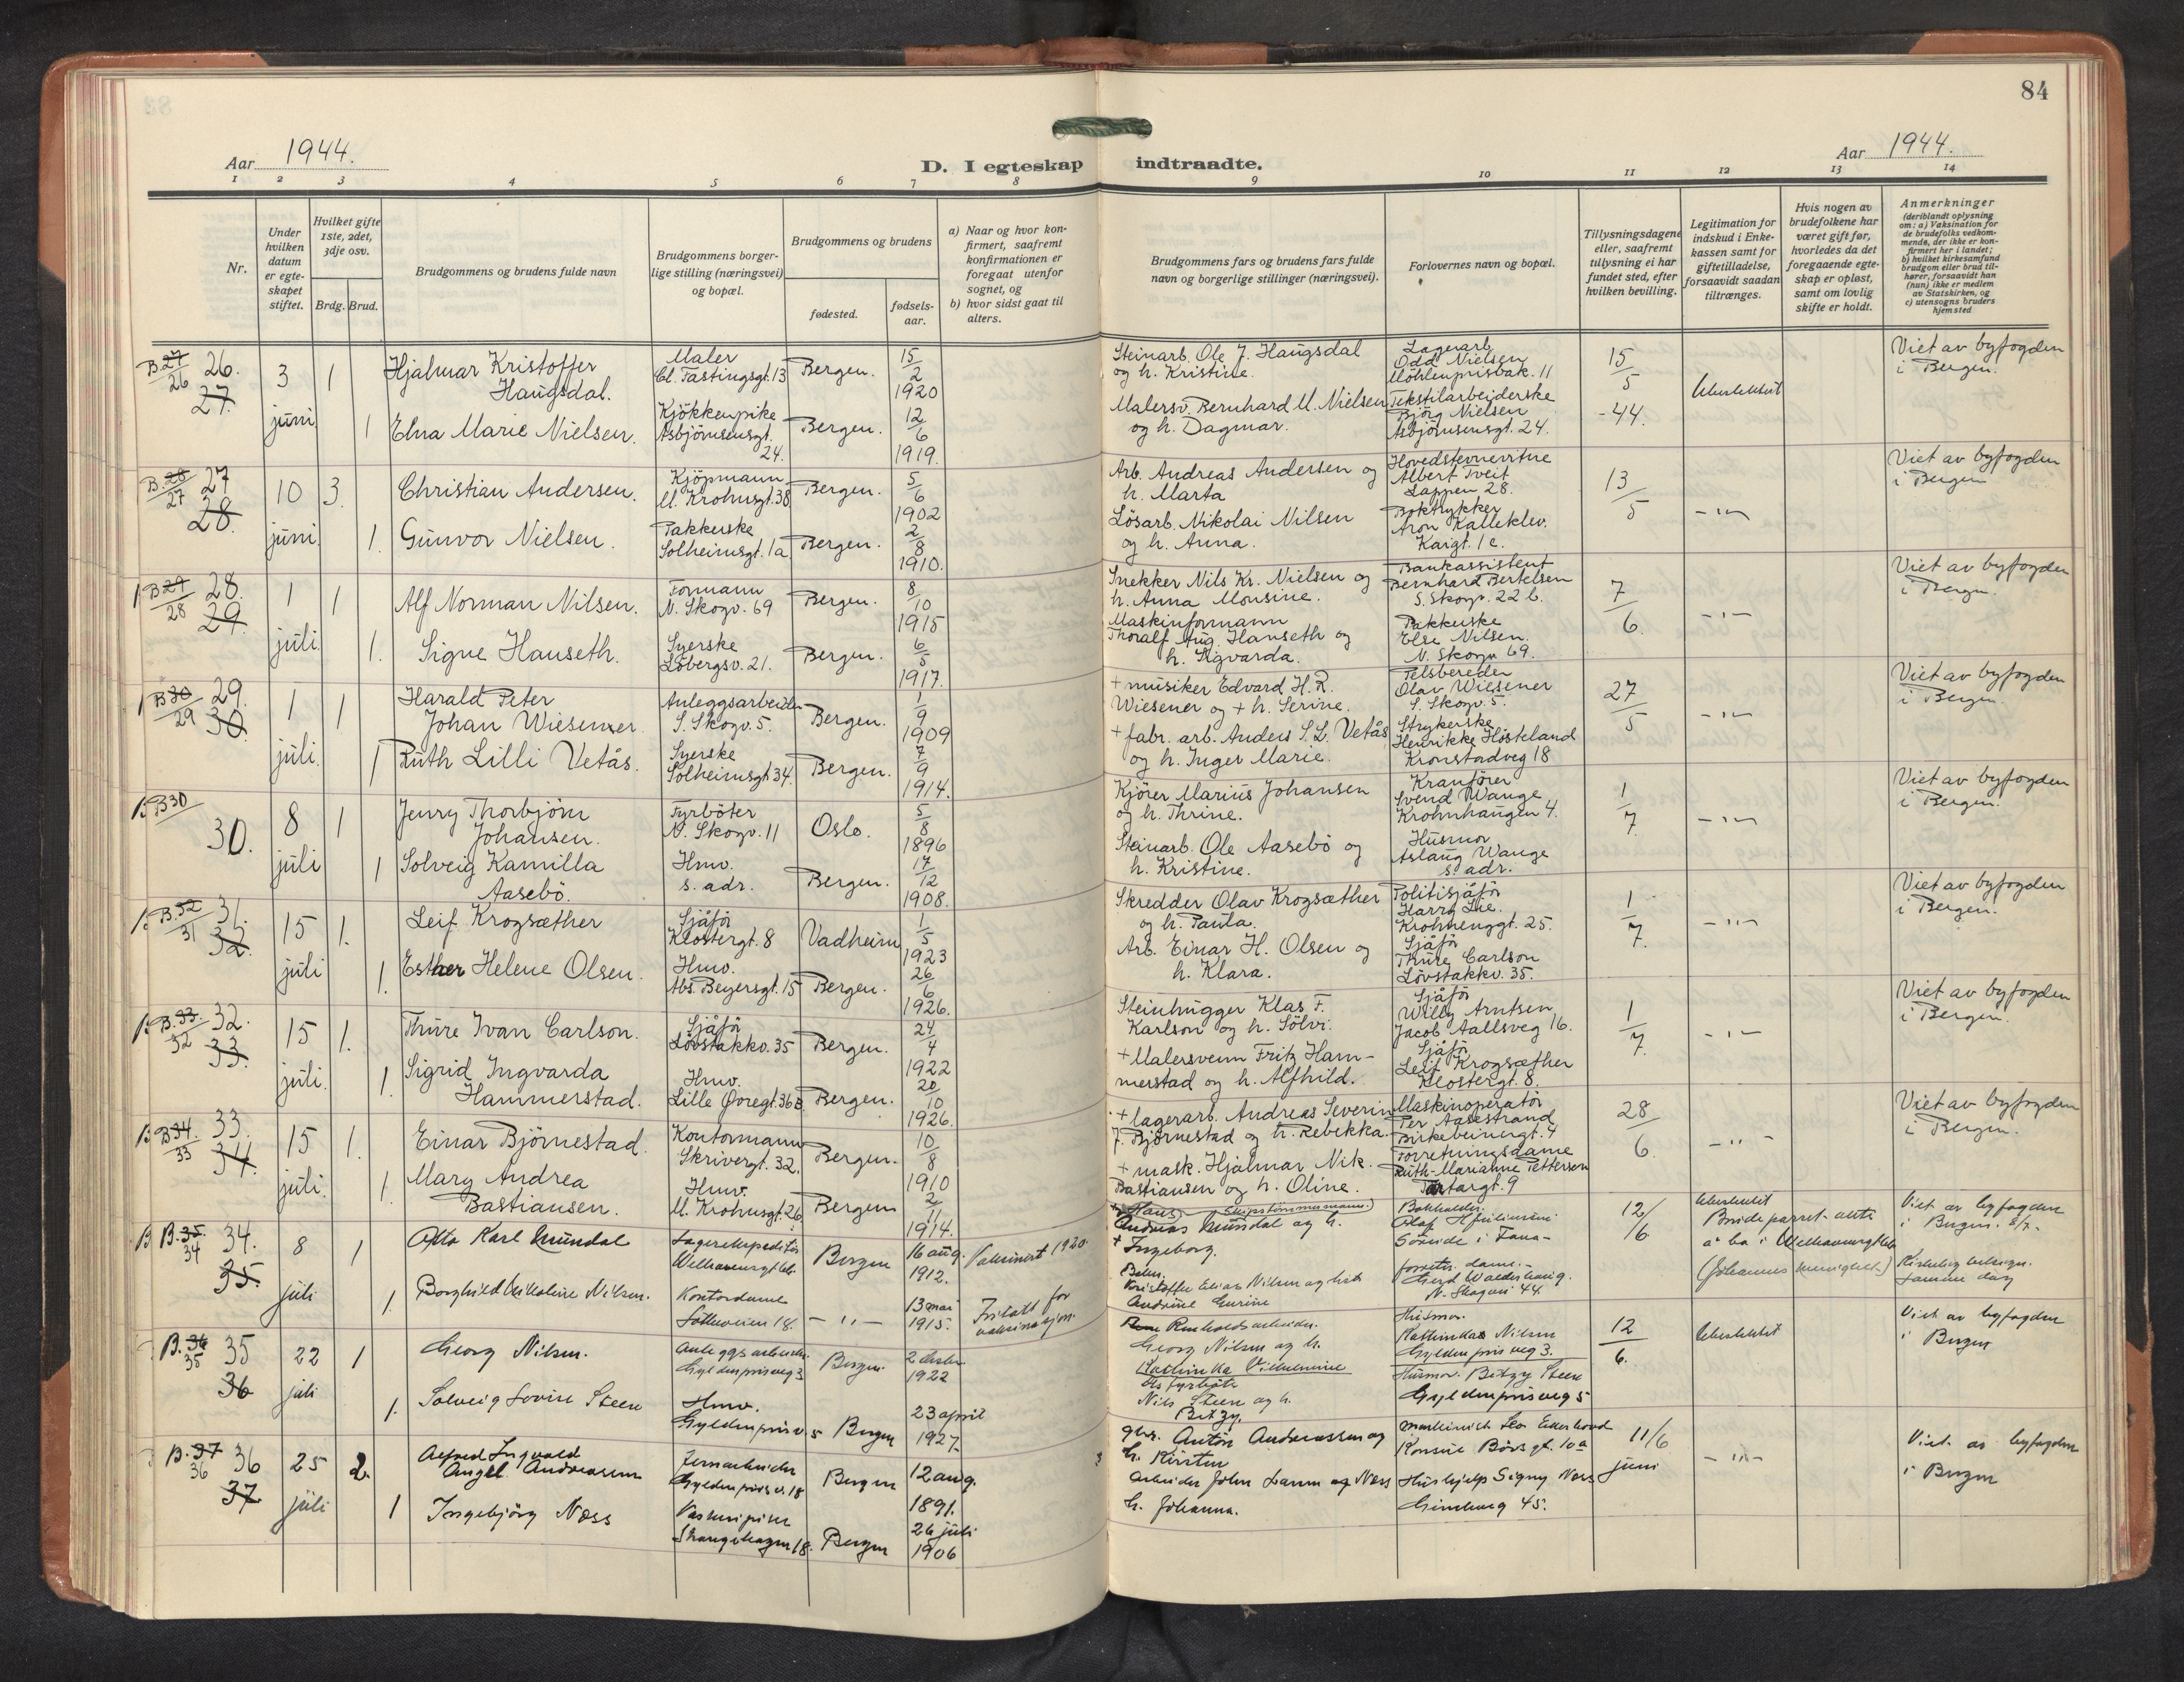 84
Aar 1944.
D. I egteskap indtraadte.
Aar 1944.
1 2 3 4 5 6 7 8 9 10 11 12 13 14
Nr.
Under hvilken datum er egteskapet stiftet.
Hvilket gifte 1ste, 2det, 3dje osv.
Brdg. Brud.
Brudgommens og brudens fulde navn
Brudgommens borgerlige stilling (næringsvei) og bopæl.
Brudgommens og brudens
fødested.
fødselsaar.
a) Naar og hvor konfirmert, saafremt konfirmationen er foregaat utenfor sognet, og
b) hvor sidst gaat til alters.
Brudgommens fars og brudens fars fulde navn og borgerlige stillinger (næringsvei).
Forlovernes navn og bopæl.
Tillysningsdagene eller, saafremt tillysning ei har fundet sted, efter hvilken bevilling.
Legitimation for indskud i Enkekassen samt for giftetilladelse, forsaavidt saadan tiltrænges.
Hvis nogen av brudefolkene har været gift før, hvorledes da det foregaaende egteskap er opløst, samt om lovlig skifte er holdt.
Anmerkninger
(deriblandt oplysning om: a) Vaksination for de brudefolks vedkommende, der ikke er konfirmert her i landet; b) hvilket kirkesamfund brudgom eller brud tilhører, forsaavidt han (hun) ikke er medlem av Statskirken, og c) utensogns bruders hjemsted
B. 27 26 26. 27.
3 juni 1
Hjalmar Kristoffer Haugsdal.
Maler
Cl. Fastingsgt. 13
Bergen.
15/2 1920
Steinarb. Ole J. Haugsdal og h. Kristine.
Lagerarb. Odd Nielsen
Möhlenprisbak. 11
15/5 -44.
Viet av byfogden i Bergen.
1 Elna Marie Nielsen.
Kjökkenpike
Asbjörnsensgt. 24.
Bergen.
12/6 1919.
Malersv. Bernhard M. Nielsen og h. Dagmar.
Tekstilarbeiderske
Bjørg Nielsen
Asbjörnsensgt. 24.
B. 28 27 27 28.
10 juni. 3.
Christian Andersen.
Kjöpmann
M. Krohnsgt. 38
Bergen.
5/6 1902
Arb. Andreas Andersen og h. Marta
Hovedstevnevitne
Albert Tveit
Lappen 28.
13/5
-"-
Viet av byfogden i Bergen
1. Gunvor Nielsen.
Pakkerske
Solheimsgt. 1a
Bergen.
2/8 1910.
Lösarb. Nikolai Nilsen og h. Anna.
Boktrykker
Aron Kalleklev.
Kaigt. 1e.
B 29 28 28. 29.
1 juli. 1
Alf Norman Nilsen.
Formann
N. Skogv. 69
Bergen.
8/10 1915
Snekker Nils Kr. Nielsen og h. Anna Monsine.
Bankassistent
Bernhard Bertelsen
S. Skogv. 22 b.
7/6.
-"-
Viet av byfogden i Bergen.
1. Signe Hanseth.
Syerske
Löbergsv. 21.
Bergen.
6/5 1917.
Maskinformann
Thoralf Aug. Hanseth og h. Sigvarda.
Pakkerske
Else Nilsen.
N. Skogv 69.
B 30 29 29. 30.
1 juli. 1
Harald Peter Johan Wiesener
Anleggsarbeider
S. Skogv. 5.
Bergen.
1/9 1909
+ musiker Edvard H. R. Wiesener og + h. Serine.
Pelsbereder
Olav Wiesener
S. Skogv. 5.
27/5
-"-
Viet av byfogden i Bergen.
1 Ruth Lilli Vetås.
Syerske
Solheimsgt 34.
Bergen.
7/9 1914.
+ fabr. arb. Anders S. L. Vetås og h. Inger Marie.
Strykerske
Henrikke Hösteland
Kronstadveg 18
B 30 30.
8 juli 1
Jenry Thorbjörn Johansen.
Fyrböter
N. Skogv. 11
Oslo.
5/8 1896
Kjörer Marius Johansen og h. Thrine.
Kranförer
Svend Wange
Krohnhaugen 4.
1/7
-"-
Viet av byfogden i Bergen.
1 Solveig Kamilla Aasebö.
Hmv.
s. adr.
Bergen.
17/12 1908.
Steinarb. Ole Aasebö og h. Kristine.
Husmor
Aslaug Wange
s. adr.
B. 32 31 31. 32.
15 juli 1.
Leif Krogsæther
Sjåför
Klostergt. 8
Vadheim
1/5 1923
Skredder Olav Krogsæther og h. Paula.
Politisjåför
Harry Lie.
Krohnenggt. 25.
1/7.
-"-
Viet av byfogden i Bergen.
1. Esther Helene Olsen.
Hmv.
Abs. Beyersgt. 15
Bergen.
26/6 1926.
Arb. Einar H. Olsen og h. Klara.
Sjåför
Thure Carlson
Lövstakkv. 35.
B. 33. 32 32. 33.
15 juli. 1.
Thure Ivan Carlson.
Sjåför
Lövstakkv. 35
Bergen.
24/4 1922
Steinhugger Klas F. Karlson og h. Sölvi.
Sjåför
Willy Arntsen
Jacob Aallsveg 16.
1/7.
-"-
Viet av byfogden i Bergen.
1. Sigrid Ingvarda Hammerstad.
Hmv.
Lille Øvregt. 36 B
Bergen.
20/10 1926.
+ Malersvenn Fritz Hammerstad og h. Alfhild.
Sjåför
Leif Krogsæther
Klostergt. 8.
B 34. 33 33. 34.
15 juli. 1.
Einar Björnestad.
Kontormann
Skrivergt. 32.
Bergen.
10/8 1910
+ lagerarb. Andreas Severin J. Björnestad og h. Rebekka.
Maskinoperatör
Per Aasestrand
Birkebeinergt. 4
28/6.
-"-
Viet av byfogden i Bergen.
1. Mary Andrea Bastiansen.
Hmv.
M. Krohnsgt. 26
Bergen
2/11 1914.
+ mask. Hjalmar Nik. Bastiansen og h. Oline.
Forretningsdame
Ruth-Marianne Pettersen
Tartargt. 9
B. 35 34 34. 35.
8 juli 1
Otto Karl Mundal
Lagerekspeditör
Bergen
16 aug. 1912.
Vaksinert 1920.
Hans Skipstömmermann
Andreas Mundal og h.
+ Ingeborg.
Bokholder
Olaf
Söreide i Fana-
12/6
Brudeparret akter å bo i
(Johannes menighet.)
Viet av byfogden i Bergen. 8/7.
samme dag
1. Borghild Nikoline Nilsen.
Kontordame
18.
-"-
13 mai 1915.
Fritatt for vaksinasjon.
Kristoffer Elias Nilsen og h.
Andrine
forretn. dame.-
Gerd Walderhaug.
N. Skogvei 44
B. 36 35 35 36
22 juli 1
Georg Nilsen.
Anleggsarbeider
Gyldenprisveg 3
Bergen.
2 1922
Renholdsarbeider.
Georg Nilsen og h.
Kathinka Vilhelmine
Husmor.
Kathinka Nilsen
Gyldenprisveg 3.
12/6.
Viet av byfogden i Bergen
1. Solveig Lovise Steen
Hmv.
Gyldenprisv. 5
Bergen
23 april 1927.
fyrböter
Nils Steen og h.
Betzy.
Husmor. Betzy Steen
Gyldenprisveg 5
B. 37 36 36 37
25 juli 2.
Alfred Ingvald Angel Andreassen
Jernarbeider
Gyldenprisv. 18
Bergen
12 aug. 1891.
Anton Andreassen og h. Kirsten
maskinist Leo
Konsul Börsgt. 10a
11/6 juni
-"-
Viet av byfogden i Bergen
1 Ingebjörg Næss
18.
Bergen
26 juli 1906
arbeider John Næss h. Johanna.
Hushjelp Signy Næss
45.